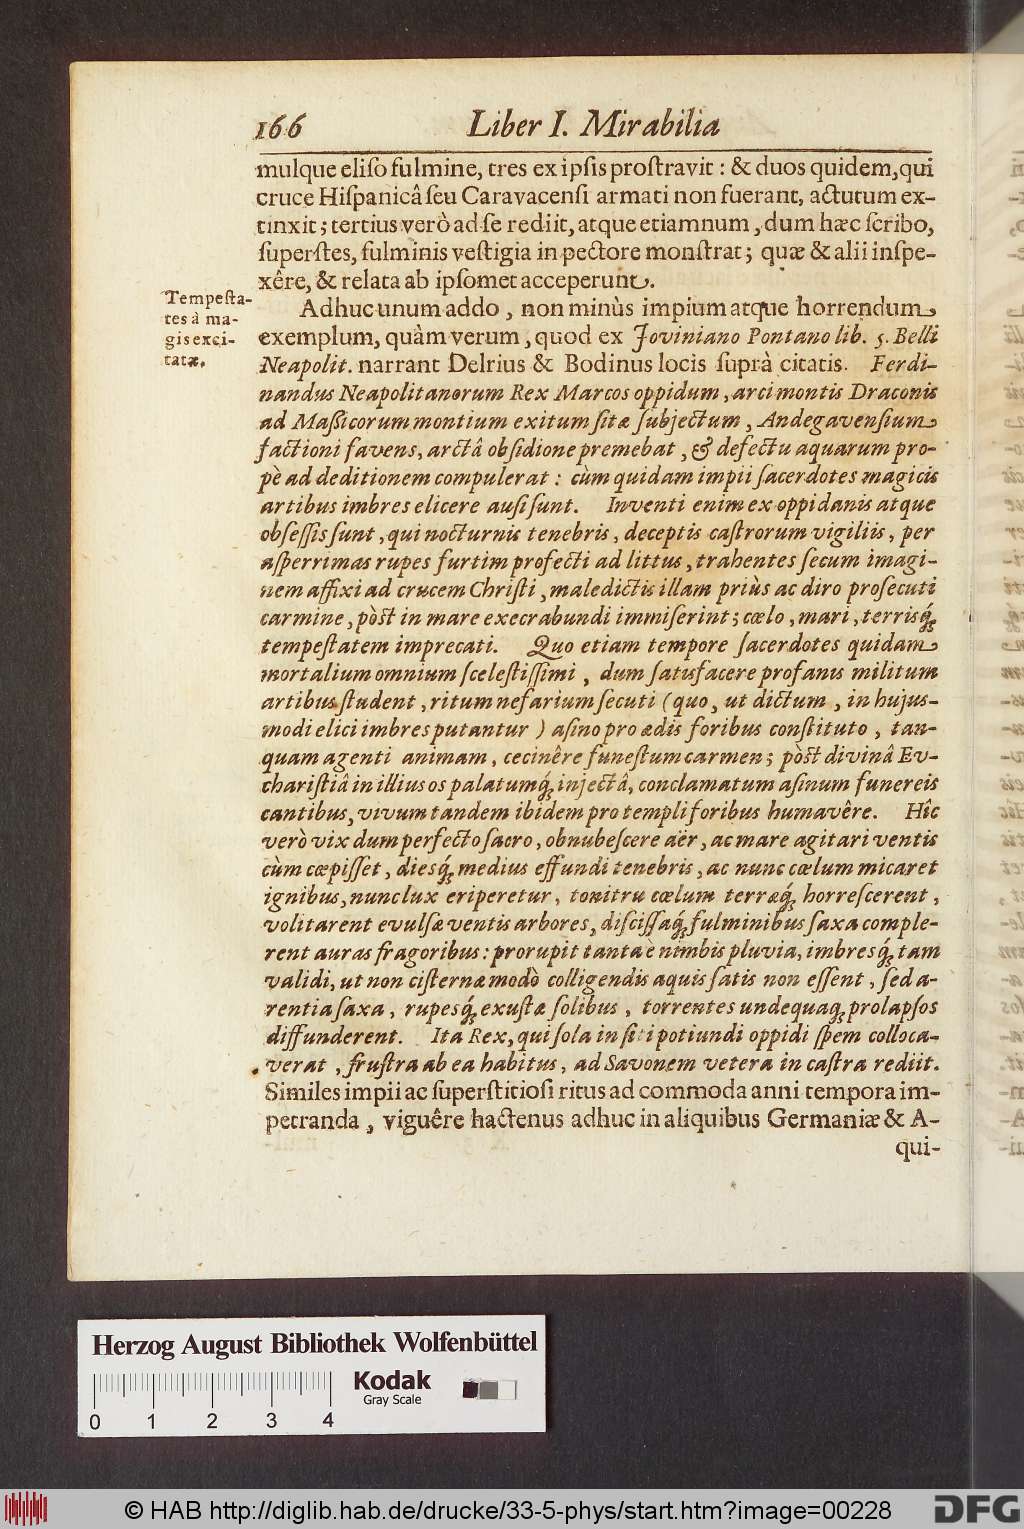 166 Liber I. Mirabilia
mulque eliſo fulmine, tres ex ipſis proſtravit : & duos quidem, qui
cruce Hiſpanicâ ſeu Caravacenſi armati non fuerant, actutum ex-
tinxit ; tertius verò ad ſe rediit, atque etiamnum, dum hæc ſcribo,
ſuperſtes, fulminis veſtigia in pectore monſtrat; quæ & alii inſpe-
xêre, & relata ab ipſomet acceperunt.
Tempeſta-
tes à ma-
gis exci-
tatæ.
Adhuc unum addo, non minùs impium atque horrendum
exemplum, quàm verum, quod ex Joviniano Pontano lib. 5. Belli
Neapolit. narrant Delrius & Bodinus locis ſuprà citatis. Ferdi-
nandus Neapolitanorum Rex Marcos oppidum, arci montis Draconis
ad Maſſicorum montium exitum ſitæ ſubjectum, Andegavenſium
factioni favens, arctâ obſidione premebat, & defectu aquarum pro-
pè ad deditionem compulerat : cùm quidam impii ſacerdotes magicis
artibus imbres elicere auſi ſunt. Inventi enim ex oppidanis atque
obſeſſis ſunt, qui nocturnis tenebris, deceptis caſtrorum vigiliis, per
aſperrimas rupes furtim profecti ad littus, trahentes ſecum imagi-
nem affixi ad crucem Chriſti, maledictis illam priùs ac diro proſecuti
carmine, pòst in mare execrabundi immiſerint; cœlo, mari, terrisq́;
tempeſtatem imprecati. Quo etiam tempore ſacerdotes quidam
mortalium omnium ſceleſtiſſimi, dum ſatisfacere profanis militum
artibus ſtudent, ritum nefarium ſecuti (quo, ut dictum, in hujus-
modi elici imbres putantur) aſino pro ædis foribus conſtituto, tan-
quam agenti animam, cecinêre funeſtum carmen; pòst divinâ Eu-
chariſtiâ in illius os palatumq́; injectâ, conclamatum aſinum funereis
cantibus, vivum tandem ibidem pro templi foribus humavêre. Hîc
verò vix dum perfecto ſacro, obnubeſcere aër, ac mare agitari ventis
cùm cœpiſſet, diesq́; medius effundi tenebris, ac nunc cœlum micaret
ignibus, nunc lux eriperetur, tonitru cœlum terraq́; horreſcerent,
volitarent evulſæ ventis arbores, diſciſſaq́; fulminibus ſaxa comple-
rent auras fragoribus: prorupit tanta è nimbis pluvia, imbresq́; tam
validi, ut non ciſternæ modò colligendis aquis ſatis non eſſent, ſed a-
rentia ſaxa, rupesq́; exuſtæ ſolibus, torrentes undequaq; prolapſos
diffunderent. Ita Rex, qui ſola in ſiti potiundi oppidi ſpem colloca-
verat, fruſtra ab ea habitus, ad Savonem vetera in caſtra rediit.
Similes impii ac ſuperſtitioſi ritus ad commoda anni tempora im-
petranda, viguêre hactenus adhuc in aliquibus Germaniæ & A-
qui-
Herzog August Bibliothek Wolfenbüttel
Kodak
Gray Scale
0 1 2 3 4
© HAB http://diglib.hab.de/drucke/33-5-phys/start.htm?image=00228
DFG